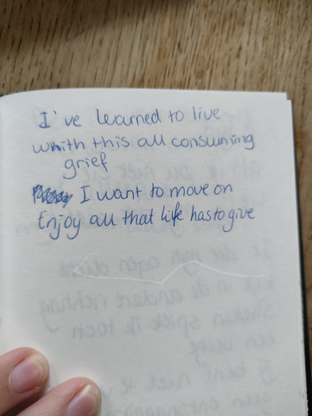 I've learned to live
whith this all consuming
grief
I want to move on
Enjoy all that life has to give